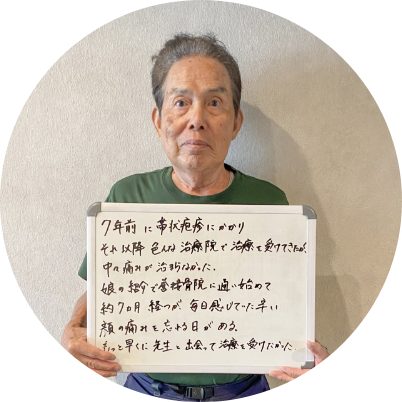 7年前に帯状疱疹にかかり
それ以降 色んな治療院で治療を受けてきたが、
中々痛みが治まらなかった。
娘の紹介で 整骨院に通い始めて
約7ヵ月 経つが、毎日感じていた辛い
顔の痛みを忘れる日がある。
もっと早くに先生と出会って治療を受けたかった。